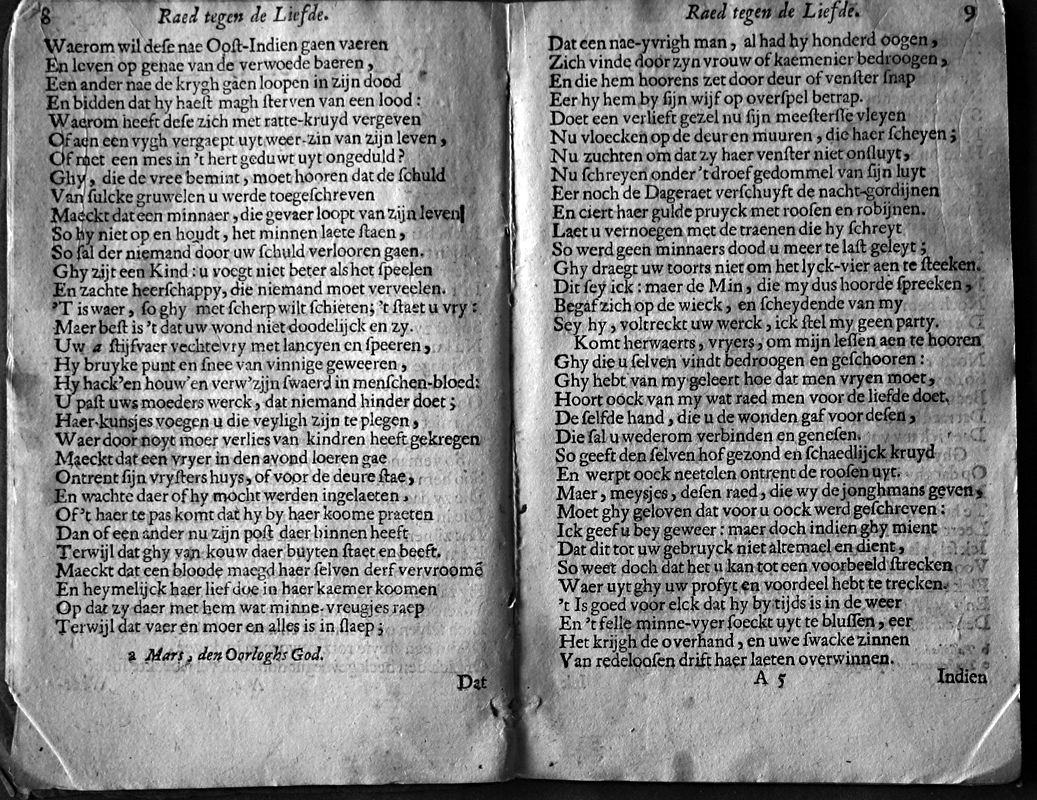 8 Raed tegen de Liefde.
Waerom wil deſe nae Ooſt-Indien gaen vaeren
En leven op genae van de verwoede baeren,
Een ander nae de krygh gaen loopen in zijn dood
En bidden dat hy haeſt magh ſterven van een lood:
Waerom heeft deſe zich met ratte-kruyd vergeven
Of aen een vygh vergaept uyt weer-zin van zijn leven,
Of met een mes in 't hert geduwt uyt ongeduld?
Ghy, die de vree bemint, moet hooren dat de ſchuld
Van ſulcke gruwelen u werde toegeſchreven
Maeckt dat een minnaer, die gevaer loopt van zijn leven
So hy niet op en houdt, het minnen laete ſtaen,
So ſal der niemand door uw ſchuld verlooren gaen.
Ghy zijt een Kind: u voegt niet beter als het ſpeelen
En zachte heerſchappy, die niemand moet verveelen.
'T is waer, ſo ghy met ſcherp wilt ſchieten; 't ſtaet u vry:
Maer beſt is 't dat uw wond niet doodelijck en zy.
Uw a ſtijfvaer vechte vry met lancyen en ſpeeren,
Hy bruyke punt en ſnee van vinnige geweeren,
Hy hack'en houw'en verw'zijn ſwaerd in menſchen-bloed:
U paſt uws moeders werck, dat niemand hinder doet;
Haer kunsjes voegen u die veyligh zijn te plegen,
Waer door noyt moer verlies van kindren heeft gekregen
Maeckt dat een vryer in den avond loeren gae
Ontrent ſijn vryſters huys, of voor de deure ſtae,
En wachte daer of hy mocht werden ingelaeten,
Of't haer te pas komt dat hy by haer koome praeten
Dan of een ander nu zijn poſt daer binnen heeft
Terwijl dat ghy van kouw daer buyten ſtaet en beeft.
Maeckt dat een bloode maegd haer ſelven derf vervroomē
En heymelijck haer lief doe in haer kaemer koomen
Op dat zy daer met hem wat minne-vreugjes raep
Terwijl dat vaer en moer en alles is in ſlaep;
a Mars, den Oorloghs God.
Dat
Raed tegen de Liefde. 9
Dat een nae-yvrigh man, al had hy honderd oogen,
Zich vinde door zyn vrouw of kaemenier bedroogen,
En die hem hoorens zet door deur of venſter ſnap
Eer hy hem by ſijn wijf op overſpel betrap.
Doet een verlieft gezel nu ſijn meeſterſſe vleyen
Nu vloecken op de deur en muuren, die haer ſcheyen;
Nu zuchten om dat zy haer venſter niet onſluyt,
Nu ſchreyen onder 't droef gedommel van ſijn luyt
Eer noch de Dageraet verſchuyft de nacht-gordijnen
En ciert haer gulde pruyck met rooſen en robijnen.
Laet u vernoegen met de traenen die hy ſchreyt
So werd geen minnaers dood u meer te laſt geleyt;
Ghy draegt uw toorts niet om het lyck-vier aen te ſteeken.
Dit ſey ick: maer de Min, die my dus hoorde ſpreeken,
Begaf zich op de wieck, en ſcheydende van my
Sey hy, voltreckt uw werck, ick ſtel my geen party.
Komt herwaerts, vryers, om mijn leſſen aen te hooren
Ghy die u ſelven vindt bedroogen en geſchooren:
Ghy hebt van my geleert hoe dat men vryen moet,
Hoort oock van my wat raed men voor de liefde doet.
De ſelfde hand, die u de wonden gaf voor deſen,
Die ſal u wederom verbinden en geneſen.
So geeft den ſelven hof gezond en ſchaedlijck kruyd
En werpt oock neetelen ontrent de rooſen uyt.
Maer, meysjes, deſen raed, die wy de jonghmans geven,
Moet ghy geloven dat voor u oock werd geſchreven:
Ick geef u bey geweer: maer doch indien ghy mient
Dat dit tot uw gebruyck niet altemael en dient,
So weet doch dat het u kan tot een voorbeeld ſtrecken
Waer uyt ghy uw profyt en voordeel hebt te trecken.
't Is goed voor elck dat hy by tijds is in de weer
En 't felle minne-vyer ſoeckt uyt te bluſſen, eer
Het krijgh de overhand, en uwe ſwacke zinnen
Van redelooſen drift haer laeten overwinnen.
A 5 Indien